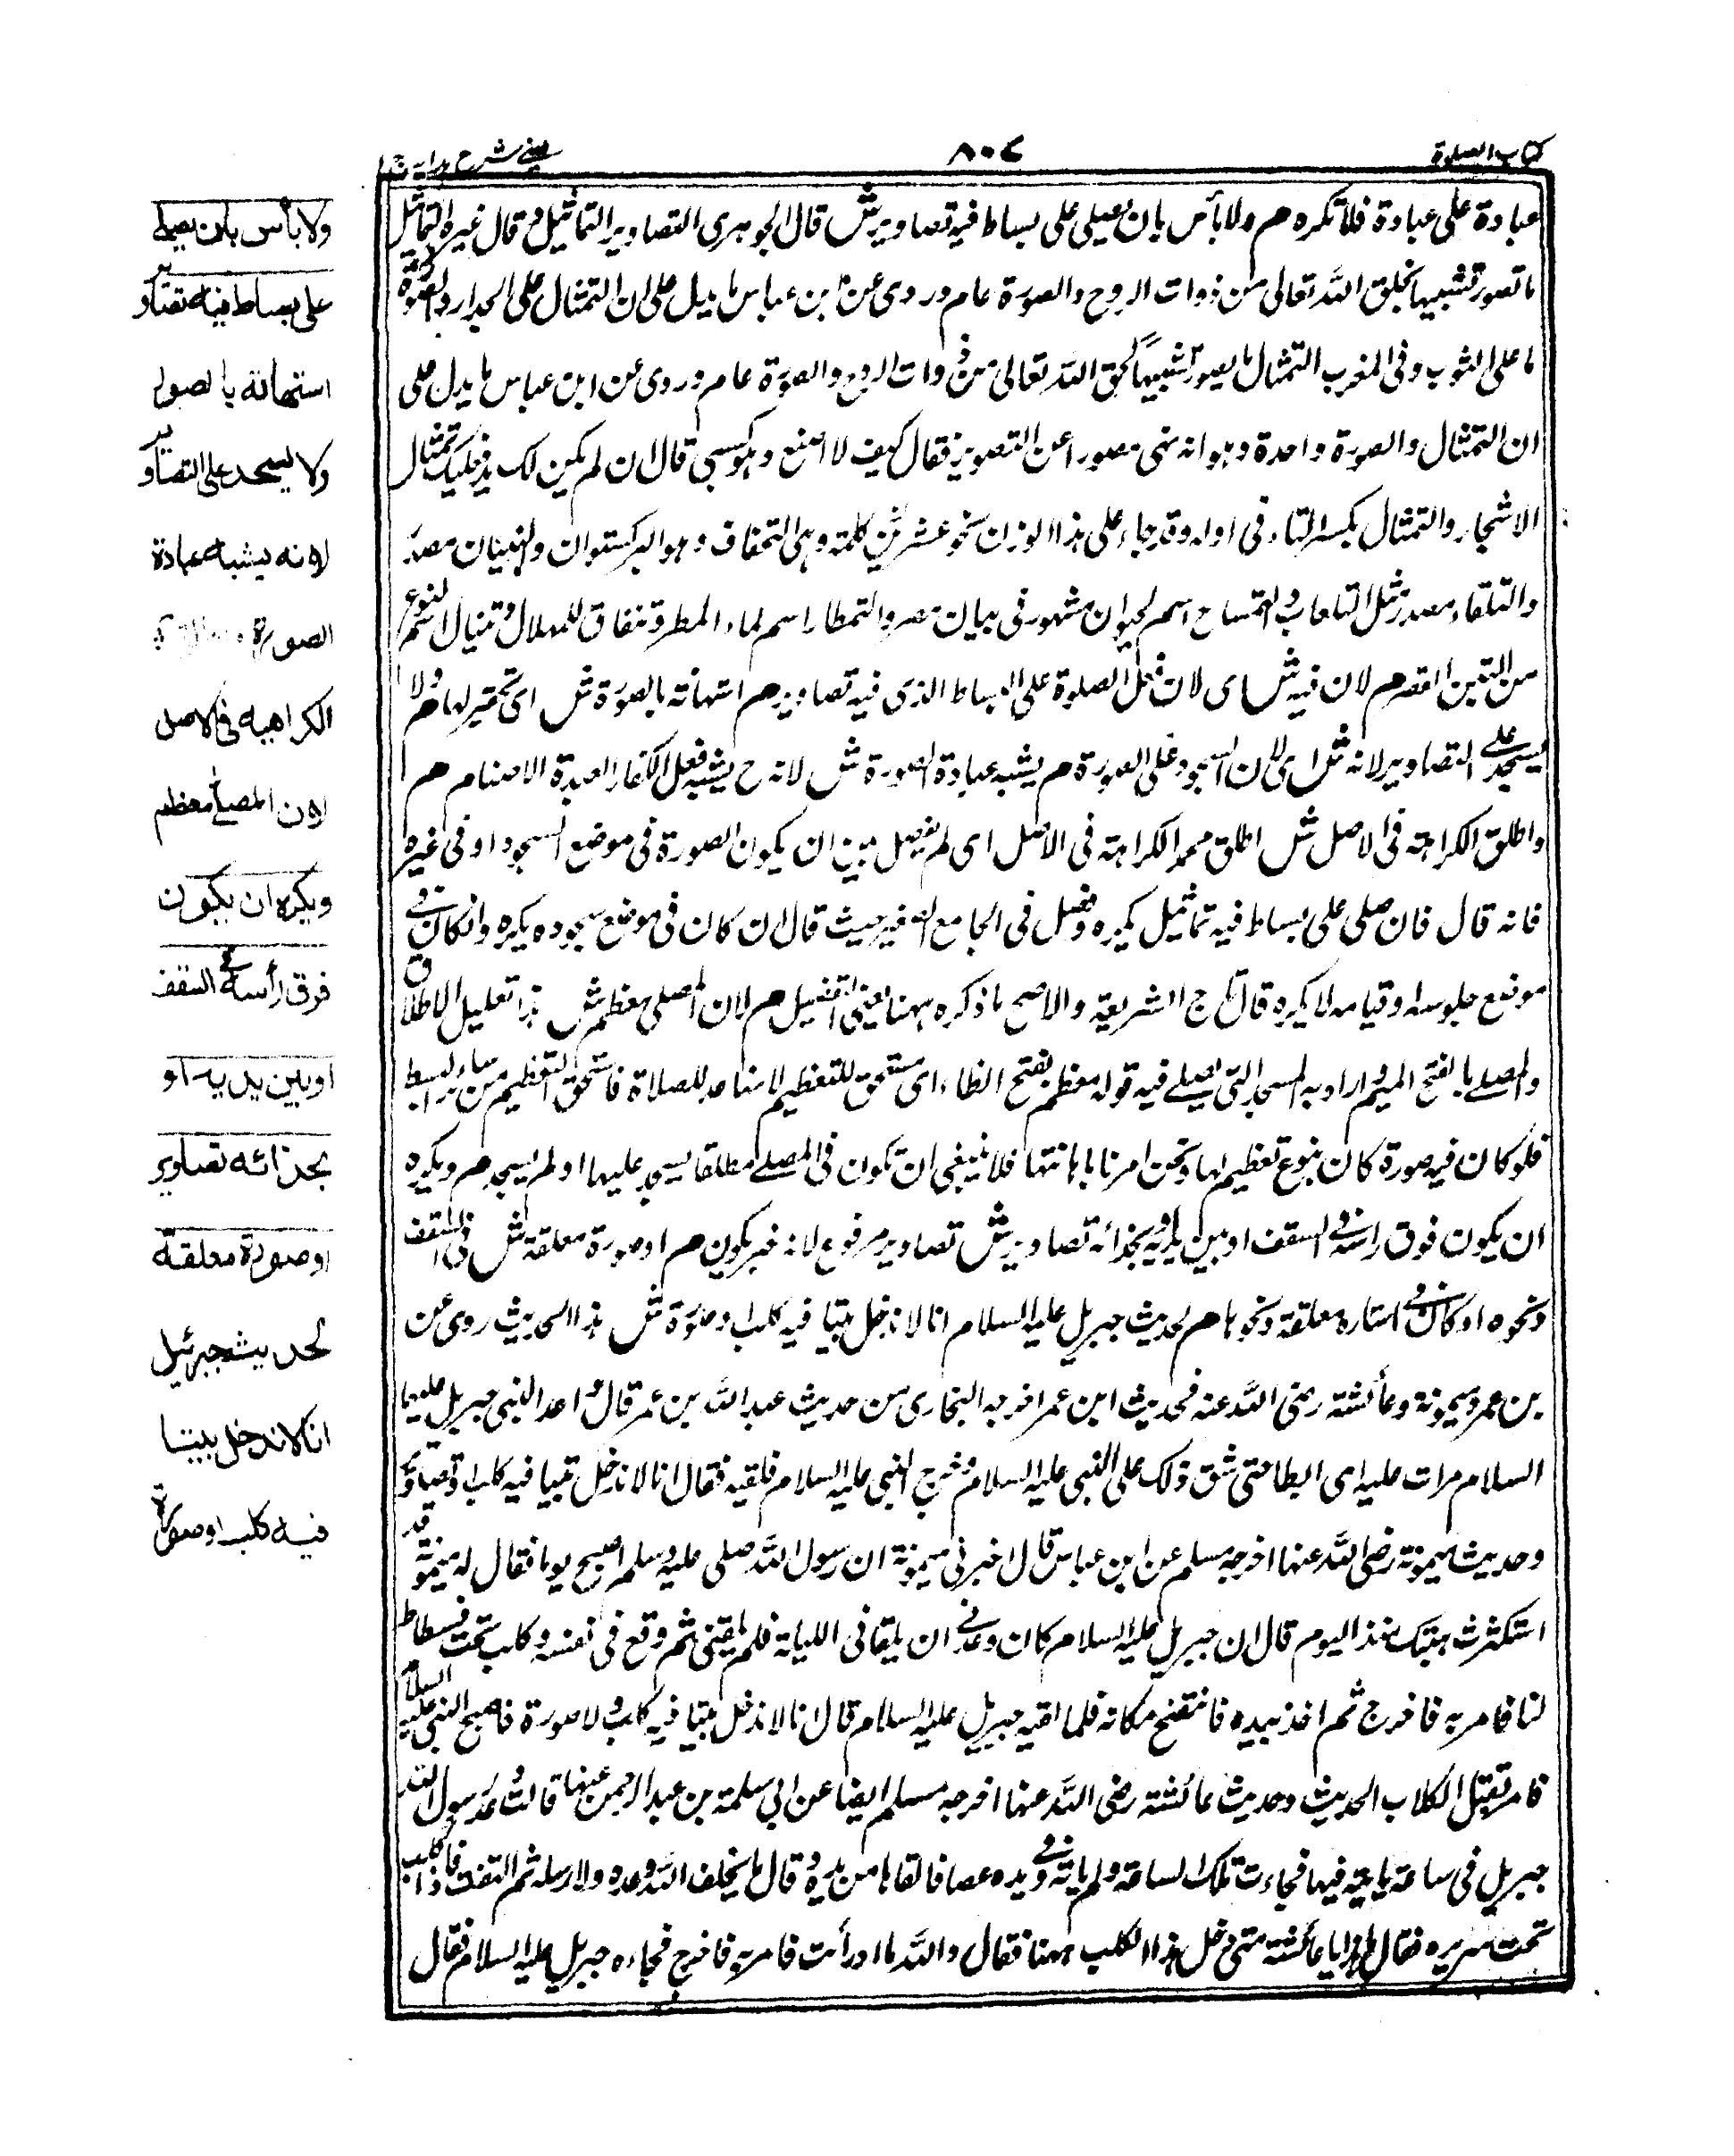 كتاب الصلوة
٨٠٧
عينى شرح هدايه ج ١
عبادة على عبادة فلا تكره هم ولا بأس بان يصلى على بساط فيه تصاوير ش قال الجوهرى التصاوير التماثيل وقال غيره التماثيل
ما تصور تشبيها بخلق الله تعالى من ذوات الروح والصورة عام وروى عن ابن عباس ما يدل على ان التمثال على الجدار والصورة
ما على الثوب وفى المغرب التمثال ما يصور تشبيهاً بخلق الله تعالى من ذوات الروح والصورة عام وروى عن ابن عباس ما يدل على
ان التمثال والصورة واحدة وهو انه نهى مصورا عن التصوير فقال كيف لا اصنع وهو كسبى قال ان لم يكن لك بد فعليك بتمثال
الاشجار والتمثال بكسر التاء فى اوله وقد جاء على هذا الوزن نحو عشرين كلمة وهى التجفاف وهو البركستوان والتبيان مصدر
والتلقاء مصدر مثل التلعاب والتمساح اسم لحيوان مشهور فى بيان مصر والتمطار اسم لماء المطر وتنفاق للهلال وتنبال اسم لنوع
من التين القصر م لان فيه ش اى لان فعل الصلوة على البساط الذى فيه تصاوير م استهانة بالصورة ش اى تحقير لها م ولا
يسجد على التصاوير لانه ش اى لان السجود على الصورة م يشبه عبادة الصورة ش لانه ح يشبه فعل الكفار العبدة الاصنام م
واطلق الكراهة فى الاصل ش اطلق محمد الكراهة فى الاصل اى لم يفصل بين ان يكون الصورة فى موضع السجود او فى غيره
فانه قال فان صلى على بساط فيه تماثيل يكره وفصل فى الجامع الصغير حيث قال ان كان فى موضع سجوده يكره وان كان فى
موضع جلوسه وقيامه لا يكره قال تاج الشريعة والاصح ما ذكره ههنا يعنى التفصيل م لان المصلى معظم ش هذا تعليل الاطلاق
والمصلى بالفتح الميم واراد به المسجد التى يصلى فيه قوله معظم بفتح الظاء اى مستحق للتعظيم لاستاعد للصلاة فاستحق التعظيم من سائر البسط
فلو كان فيه صورة كان بنوع تعظيم لها ونحن امرنا باهانتها فلا ينبغى ان تكون فى المصلى مطلقا يسجد عليها او لم يسجد م ويكره
ان يكون فوق راسه فى السقف او بين يديه او بحذائه تصاوير ش تصاوير مرفوع لانه خبر يكون م او صورة معلقة ش فى السقف
ونحوه او كان فى استاره معلقة ونحوها م لحديث جبريل عليه السلام انا لا ندخل بيتا فيه كلب او صورة ش هذا الحديث روى عن
بن عمر وميمونة وعائشة رضى الله عنه فحديث ابن عمر اخرجه البخارى من حديث عبد الله بن عمر قال واعد النبى جبريل عليهما
السلام مرات عليه اى ابطا حتى شق ذلك على النبى عليه السلام فخرج النبى عليه السلام فلقيه فقال انا لا ندخل بيتا فيه كلب او تصاوير
وحديث ميمونة رضى الله عنها اخرجه مسلم عن ابن عباس قال اخبرنى ميمونة ان رسول الله صلى عليه وسلم اصبح يوما فقال له ميمونة قد
استكثرت هيئتك منذ اليوم قال ان جبريل عليه السلام كان وعدنى ان يلقانى الليلة فلم يلقنى ثم وقع فى نفسه وكلب تحت فسطاط
لنا فامر به فاخرج ثم اخذ بيده فانتضح مكانه فلما لقيه جبريل عليه السلام قال انا لا ندخل بيتا فيه كلب ولا صورة فاصبح النبى عليه السلام
فامر بقتل الكلاب الحديث وحديث عائشة رضى الله عنها اخرجه مسلم ايضا عن ابى سلمة بن عبد الرحمن عنها قالت وعد رسول الله
جبريل فى ساعة ياتيه فيها فجاءت تلك الساعة ولم ياته وفى يده عصا فالقاها من يده وقال ما يخلف الله وعده ولا رسله ثم التفت فاذا كلب
تحت سريره فقال يا عائشة متى دخل هذا الكلب ههنا فقال والله ما ادرأت فامر به فاخرج فجاءه جبريل عليه السلام فقال
ولا بأس بان يصلى
على بساط فيه تصاوير
استهانة بالصور
ولا يسجد على التصاوير
لانه يشبه عبادة
الصورة
الكراهية فى الاصل
لان المصلى معظم
ويكره ان يكون
فوق رأسه فى السقف
او بين يديه او
بحذائه تصاوير
او صورة معلقة
لحديث جبرئيل
انا لا ندخل بيتا
فيه كلب او صورة